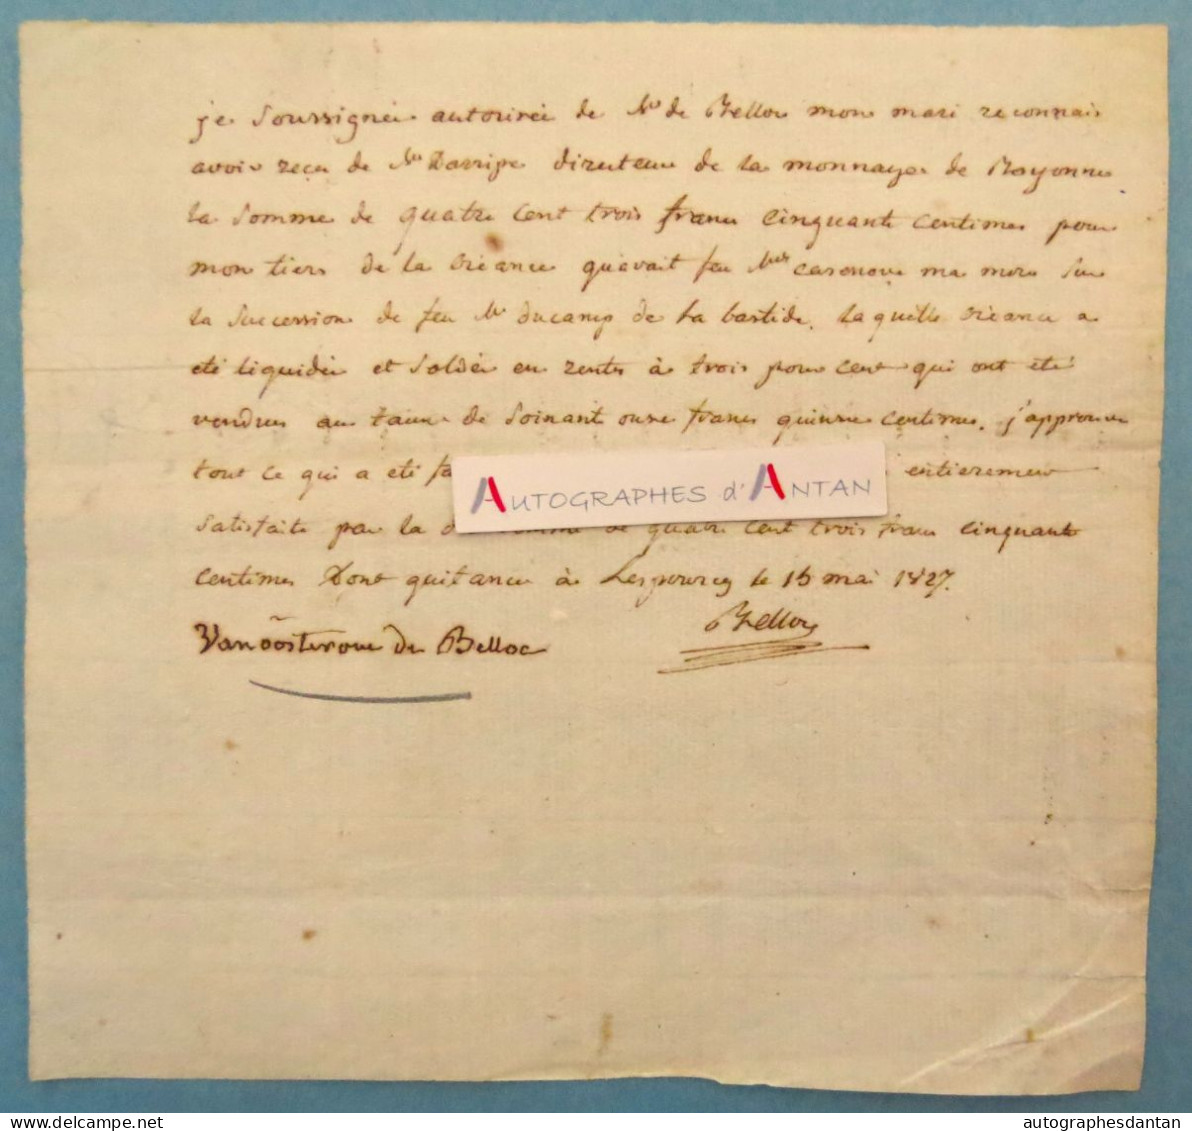 je soussignée autorisée de Mr de Belloc mon mari reconnais
avoir reçu de Mr Darripe directeur de la monnaye de Bayonne
la somme de quatre cent trois francs cinquante centimes pour
mon tiers de la créance qu'avait feu Mme casenove ma mere sur
la succession de feu Mr ducamp de la bastide. laquelle créance a
eté liquidée et soldée en rentes à trois pour cent qui ont été
vendues au taux de soixante onze francs quinze centimes. j'approuve
tout ce qui a eté entierement
AUTOGRAPHES d'ANTAN
satisfaite par la somme de quatre cent trois francs cinquante
centimes Dont quitance à Lespourcy le 15 mai 1827.
Vanoosterom de Belloc
Belloc
autographesdantan
www.delcampe.net